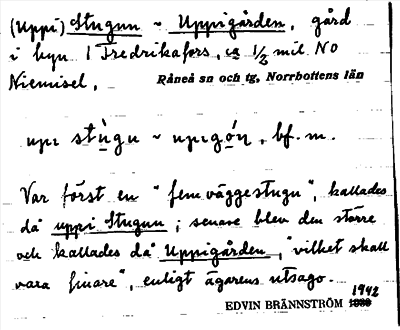 (Uppi) Stugun ~ Uppigården, gård
i byn l Fredrikafors, ca 1/2 mil NO
Niemisel,
Råneå sn och tg, Norrbottens län
upi stùgu ~ upigǫ́n, bf. m.
Var först en "femväggestugu", kallades
då uppi Stugun; senare blev den större
och kallades då Uppigården, "vilket skall
vara finare", enligt ägarens utsago.
1942
EDVIN BRÄNNSTRÖM